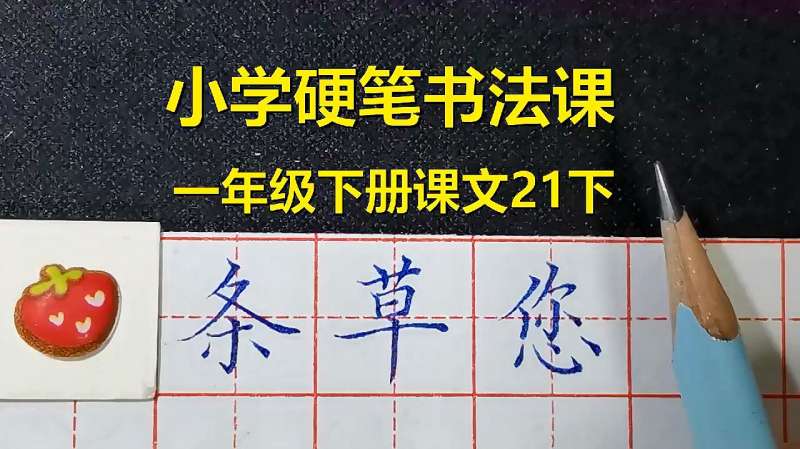 小学硬笔书法课
一年级下册课文21下
条草您